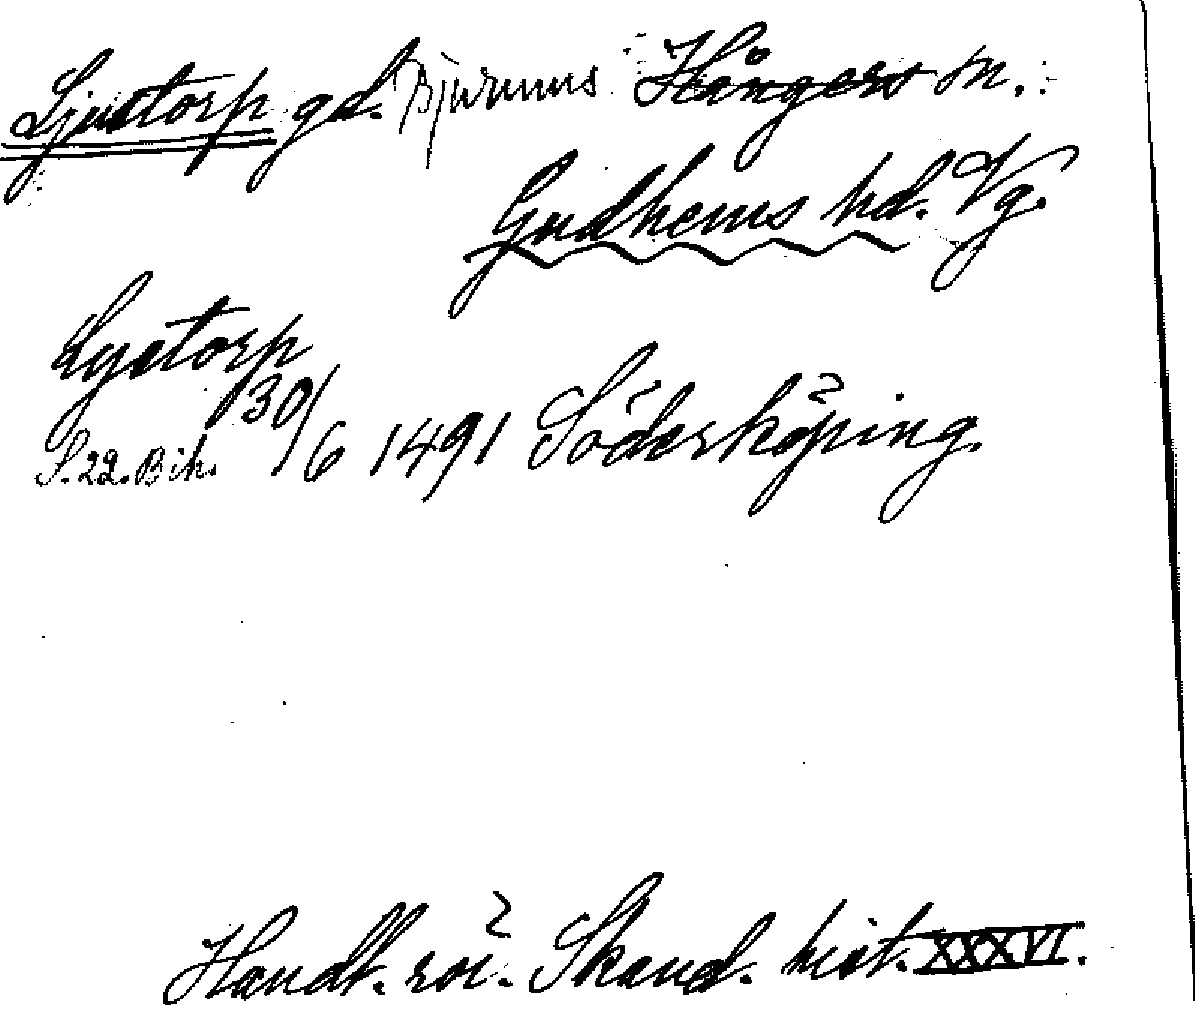 Ljustorp gd. Bjurums Hångers sn.
Gudhems hd. Vg.
Lystorp
S. 22. Bih. 30/6 1491 Söderköping.
Handl. rör. Skand. hist. XXXVI.